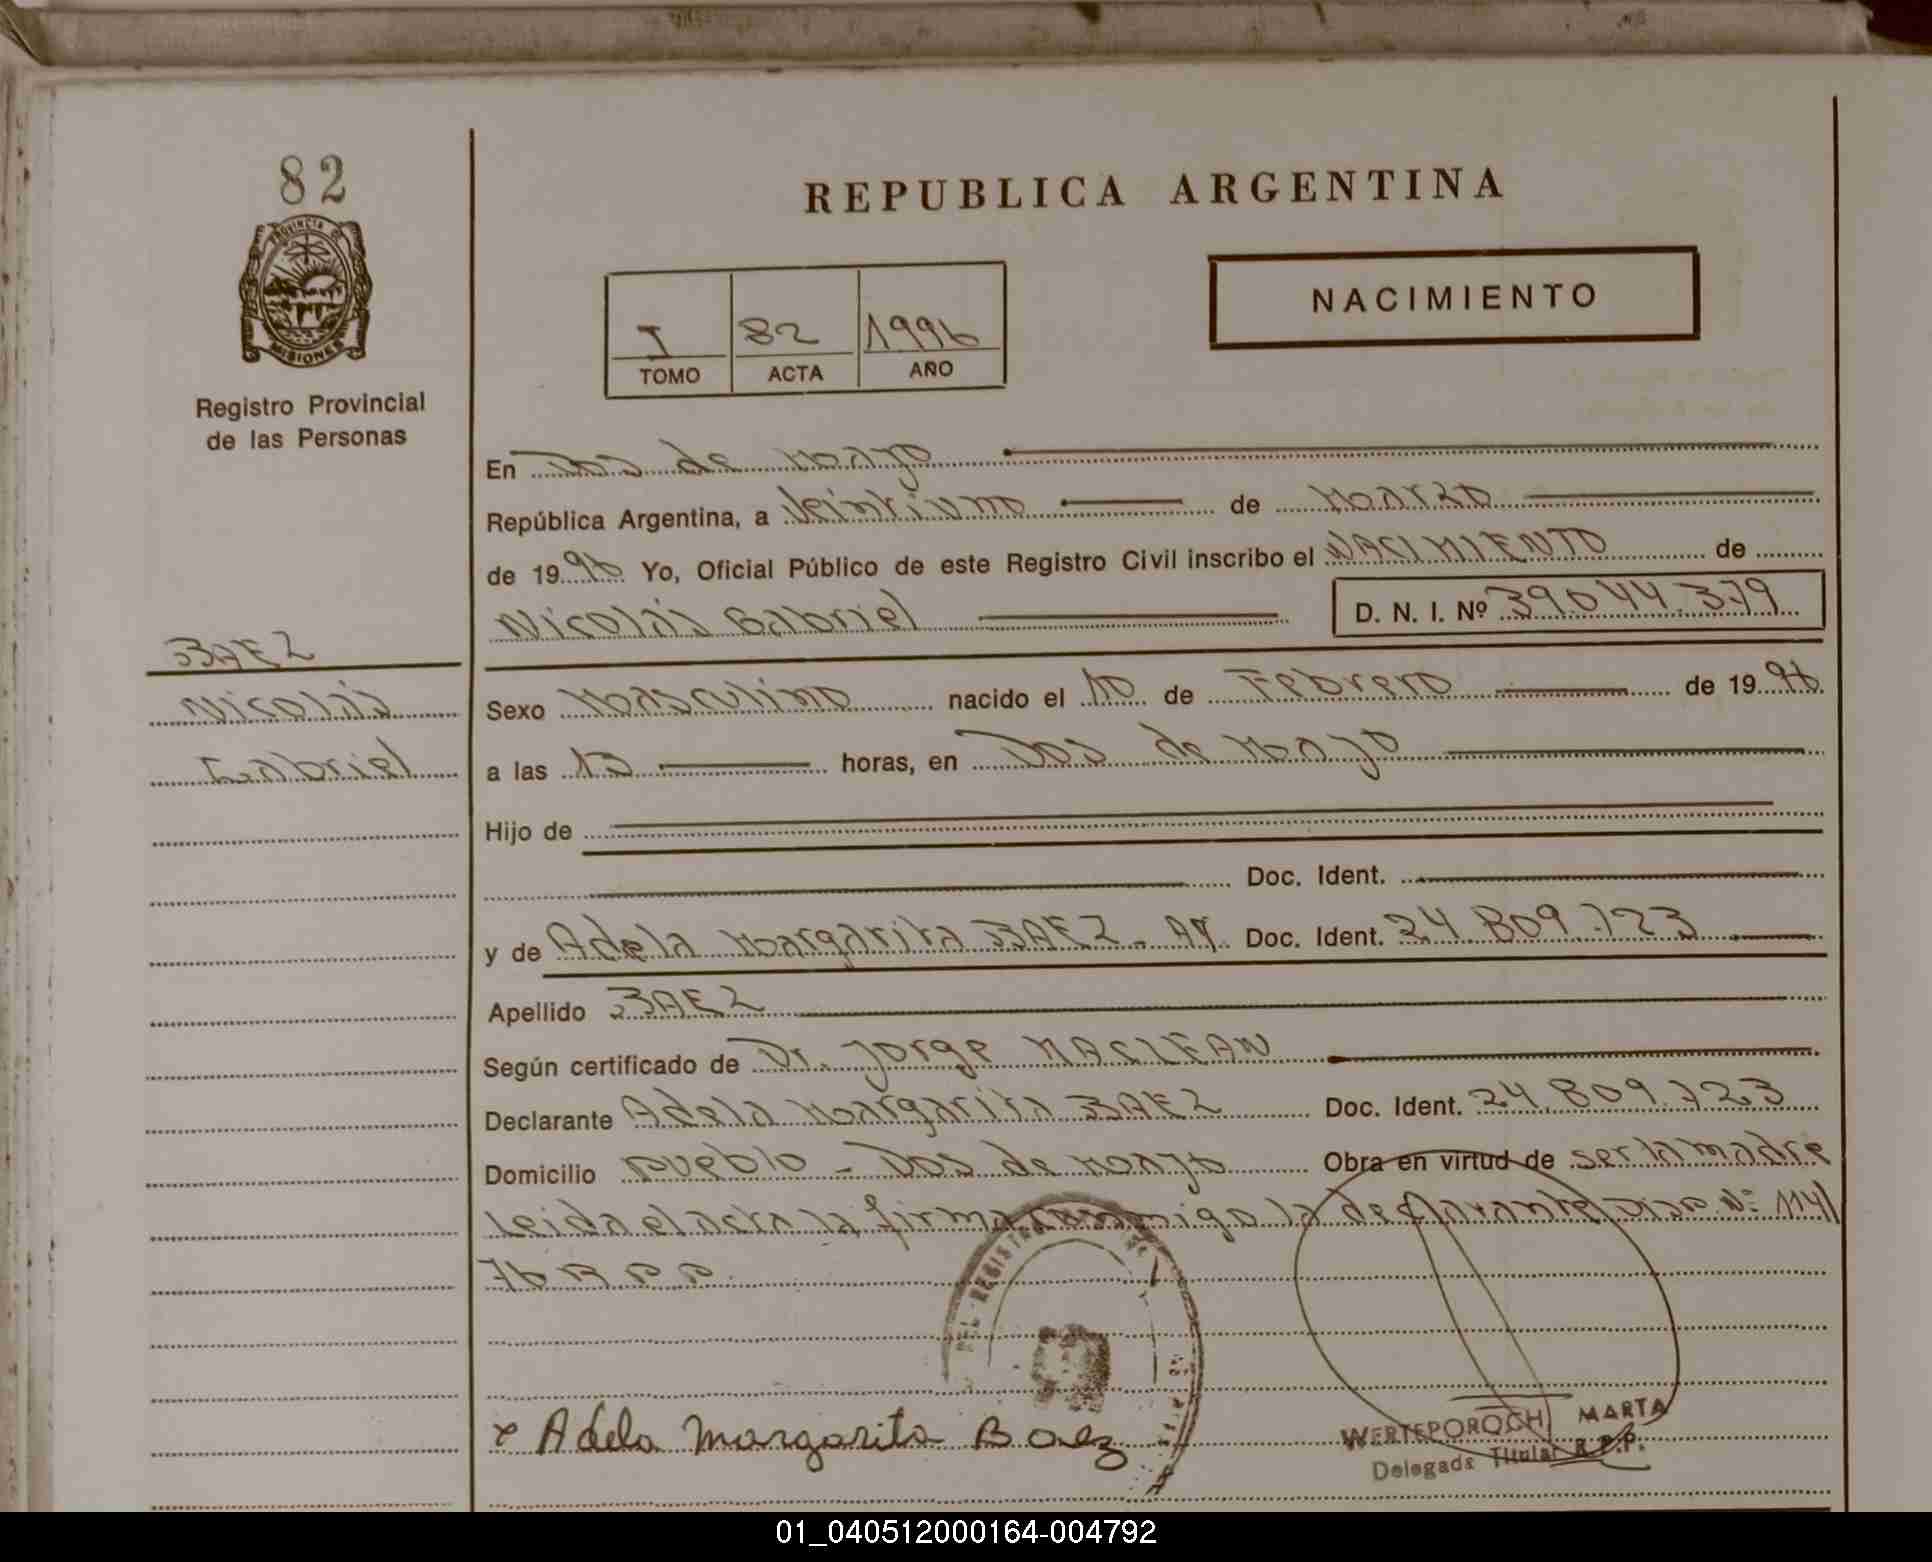 82
PROVINCIA DE
MISIONES
Registro Provincial
de las Personas
REPUBLICA ARGENTINA
I 82 1996
TOMO ACTA AÑO
NACIMIENTO
En Dos de Mayo
República Argentina, a Veintiuno de Marzo
de 1996 Yo, Oficial Público de este Registro Civil inscribo el NACIMIENTO de
Nicolás Gabriel D. N. I. Nº 39.044.379
BAEZ
Nicolás
Gabriel
Sexo Masculino nacido el 10 de Febrero de 1996
a las 13 horas, en Dos de Mayo
Hijo de
Doc. Ident.
y de Adela Margarita BAEZ - Ar. Doc. Ident. 24.809.723
Apellido BAEZ
Según certificado de Dr. Jorge MACLEAN
Declarante Adela Margarita BAEZ Doc. Ident. 24.809.723
Domicilio pueblo - Dos de Mayo Obra en virtud de ser la madre
leida el acta la firma conmigo la declarante Disp. Nº 114/
76 R.P.P.
DEL REGISTRO
x Adela Margarita Baez
WERTEPOROCH MARTA
Delegada Titular R.P.P.
01_040512000164-004792